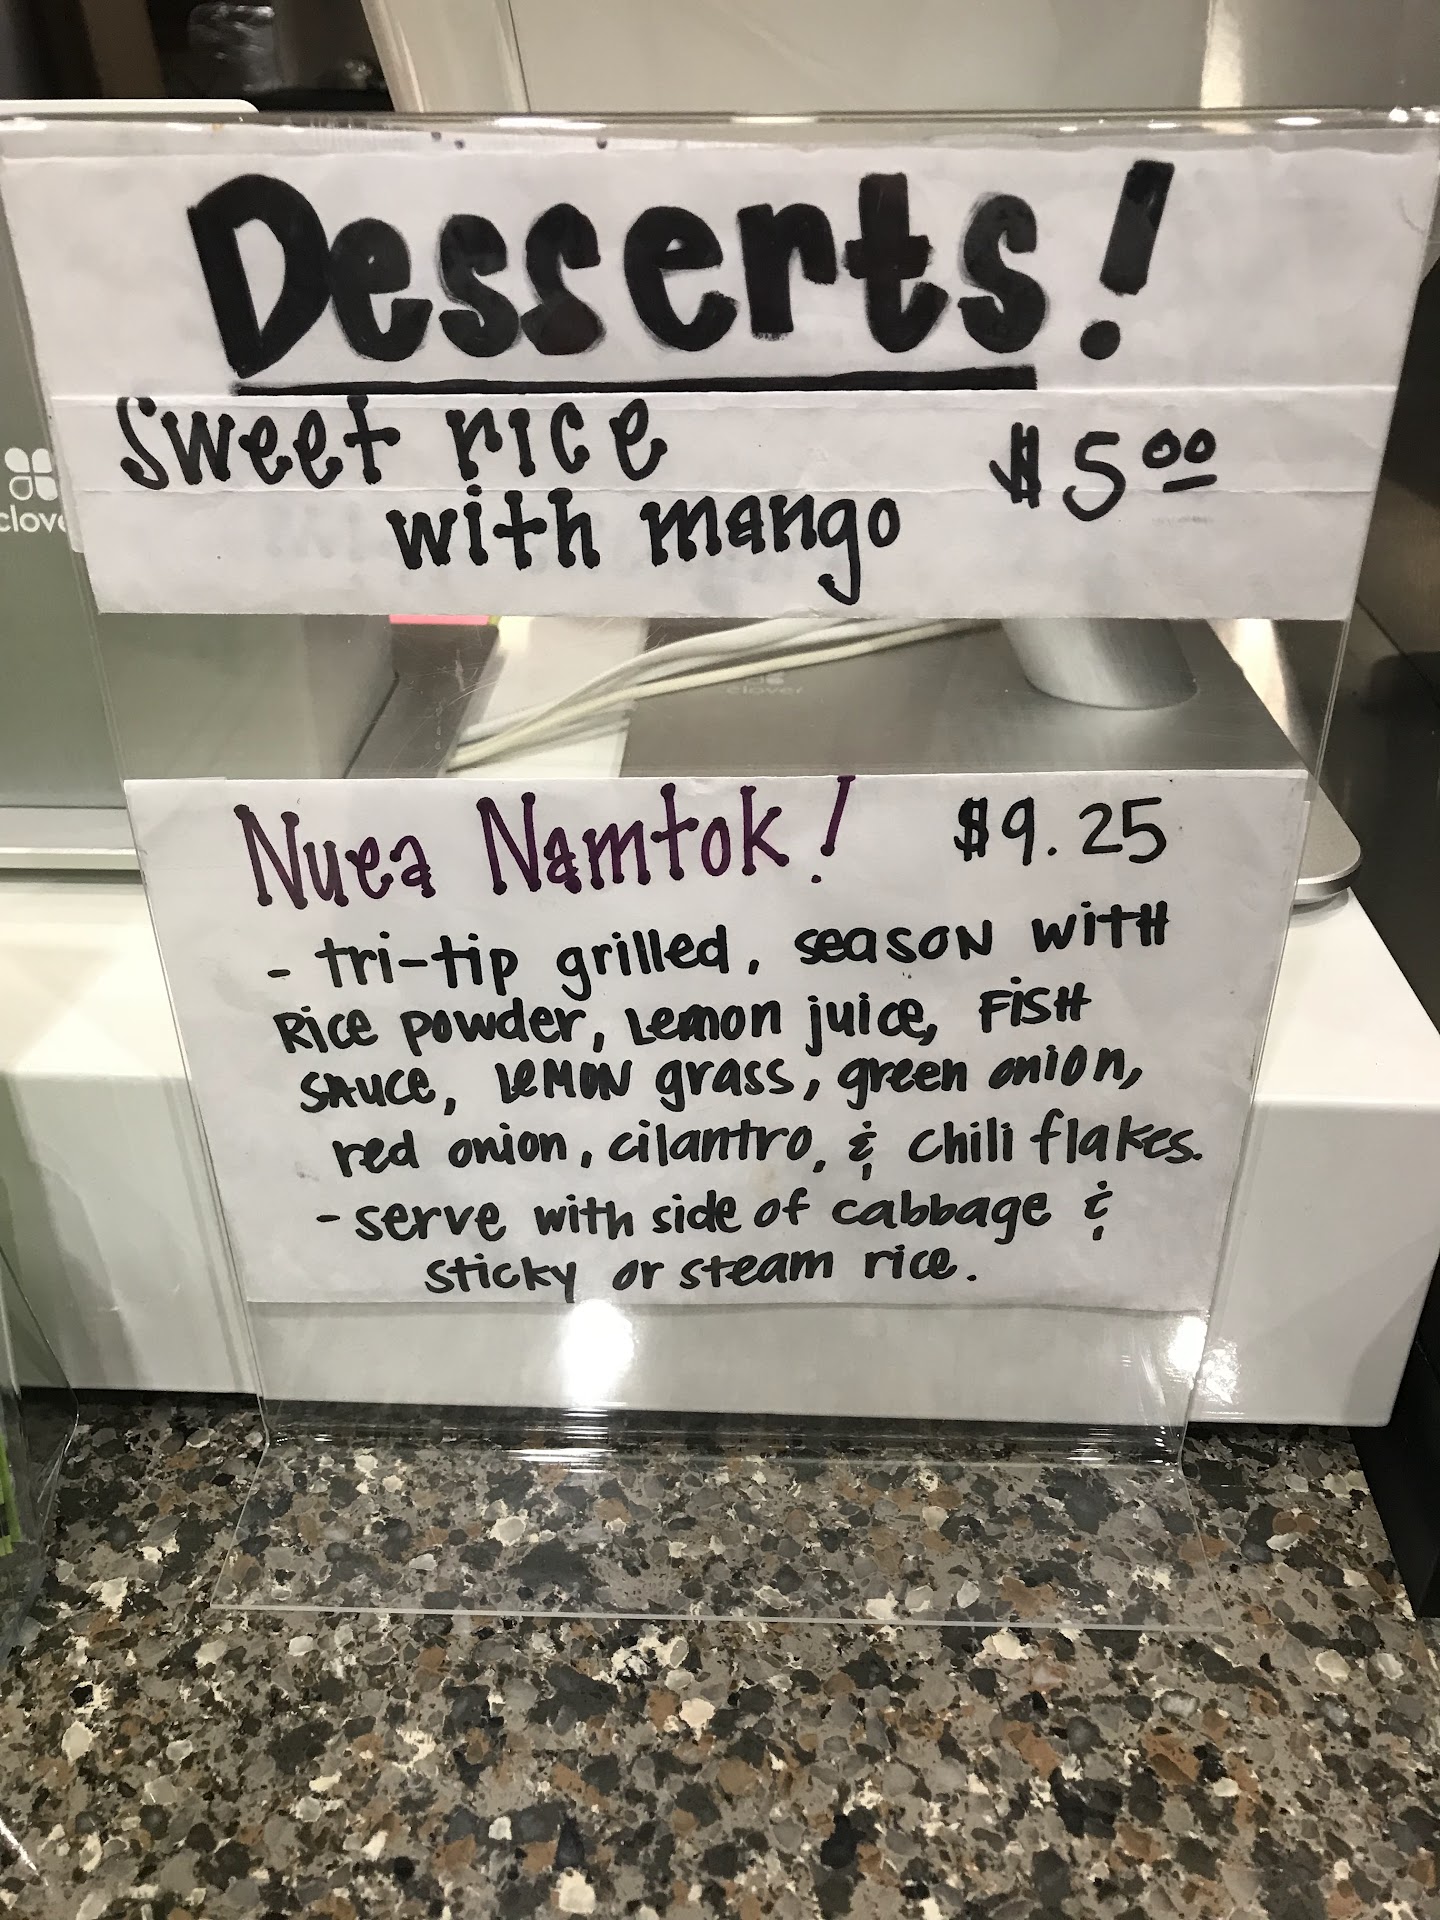 Desserts!
Sweet rice $5.00
with mango
clover
Nuea Namtok! $9.25
- tri-tip grilled, season with
Rice powder, Lemon juice, FISH
SAUCE, LEMON grass, green onion,
red onion, cilantro, & chili flakes.
- serve with side of cabbage &
sticky or steam rice.